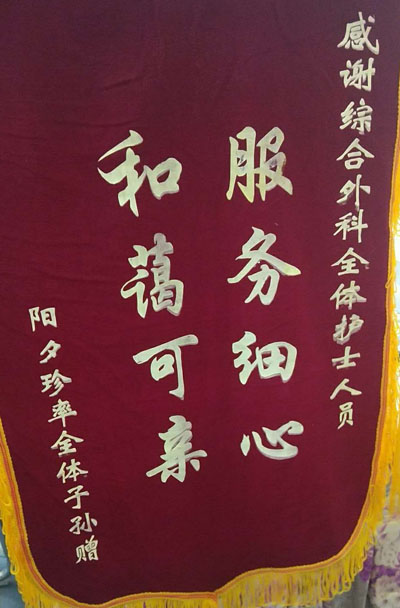 感谢综合外科全体护士人员
服务细心
和蔼可亲
阳夕珍率全体子孙赠